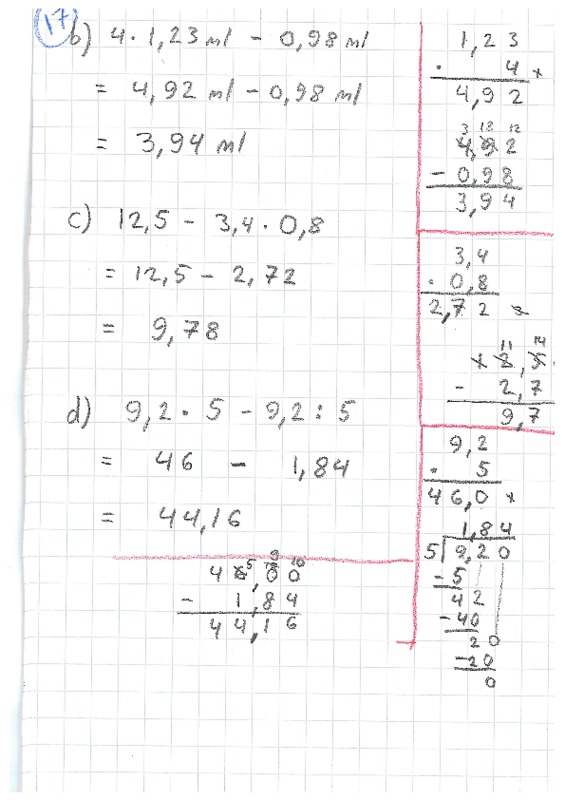 17
b) 4 · 1,23 ml - 0,98 ml
= 4,92 ml - 0,98 ml
= 3,94 ml
c) 12,5 - 3,4 · 0,8
= 12,5 - 2,72
= 9,78
d) 9,2 · 5 - 9,2 : 5
= 46 - 1,84
= 44,16
5 9 10
46,00
- 1,84
44,16
1,23
· 4 x
4,92
3 18 12
4,92
- 0,98
3,94
3,4
· 0,8
2,72
11 14
12,5
- 2,7
9,7
9,2
· 5
46,0 x
1,84
5 9,20
-5
42
-40
20
-20
0